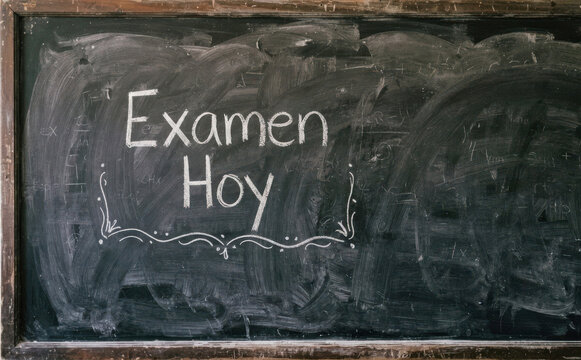 Examen
Hoy